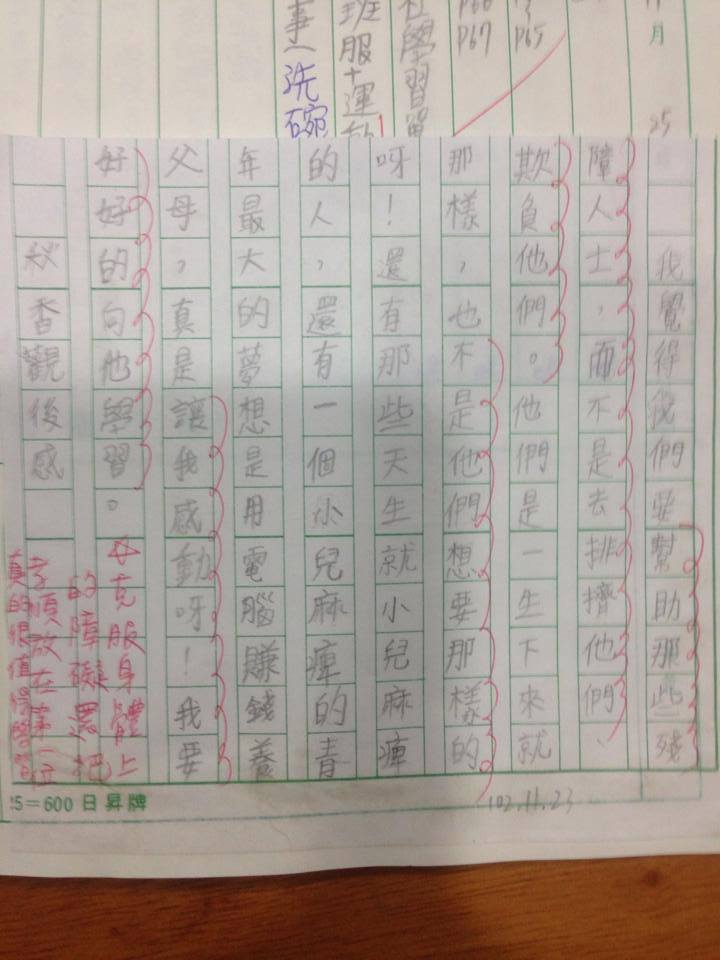 月
25
P65
P66
P67
學習單
班服+運動
事(洗碗
我覺得我們要幫助那些殘
障人士,而不是去排擠他們、
欺負他們。他們是一生下來就
那樣,也不是他們想要那樣的
呀!還有那些天生就小兒麻痺
的人,還有一個小兒麻痺的青
年最大的夢想是用電腦賺錢養
父母,真是讓我感動呀!我要
好好的向他學習。
秋香觀後感
克服身體上
的障礙還把
孝順放在第一位
真的很值得學習
25=600日昇牌
102.11.23